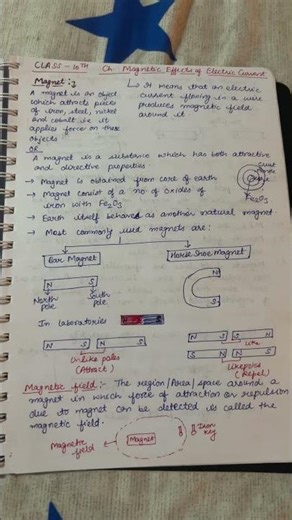 CLASS - 10TH Ch Magnetic Effects of Electric Current
Magnet :-
A magnet is an object
which attracts pieces
of iron, steel, nickel
and cobalt i.e. it
applies force on these
objects
OR
It means that an electric
current flowing in a wire
produces magnetic field
around it
A magnet is a substance which has both attractive
and directive properties.
→ Magnet is obtained from core of earth
→ Magnet consist of a no. of oxides of
iron with Fe2O3
Core
Fe2O3
→ Earth itself behaves as another natural magnet.
→ Most commonly used magnets are:
Bar Magnet
Horse Shoe Magnet
N S
North pole
South pole
N
S
In laboratories
N S N S
Unlike poles
(Attract)
N S S N
Like
S N N S
Like poles
(Repel)
Magnetic field :- The region/Area/space around a
magnet in which force of attraction or repulsion
due to magnet can be detected is called the
magnetic field.
Magnetic field
Magnet
Iron key